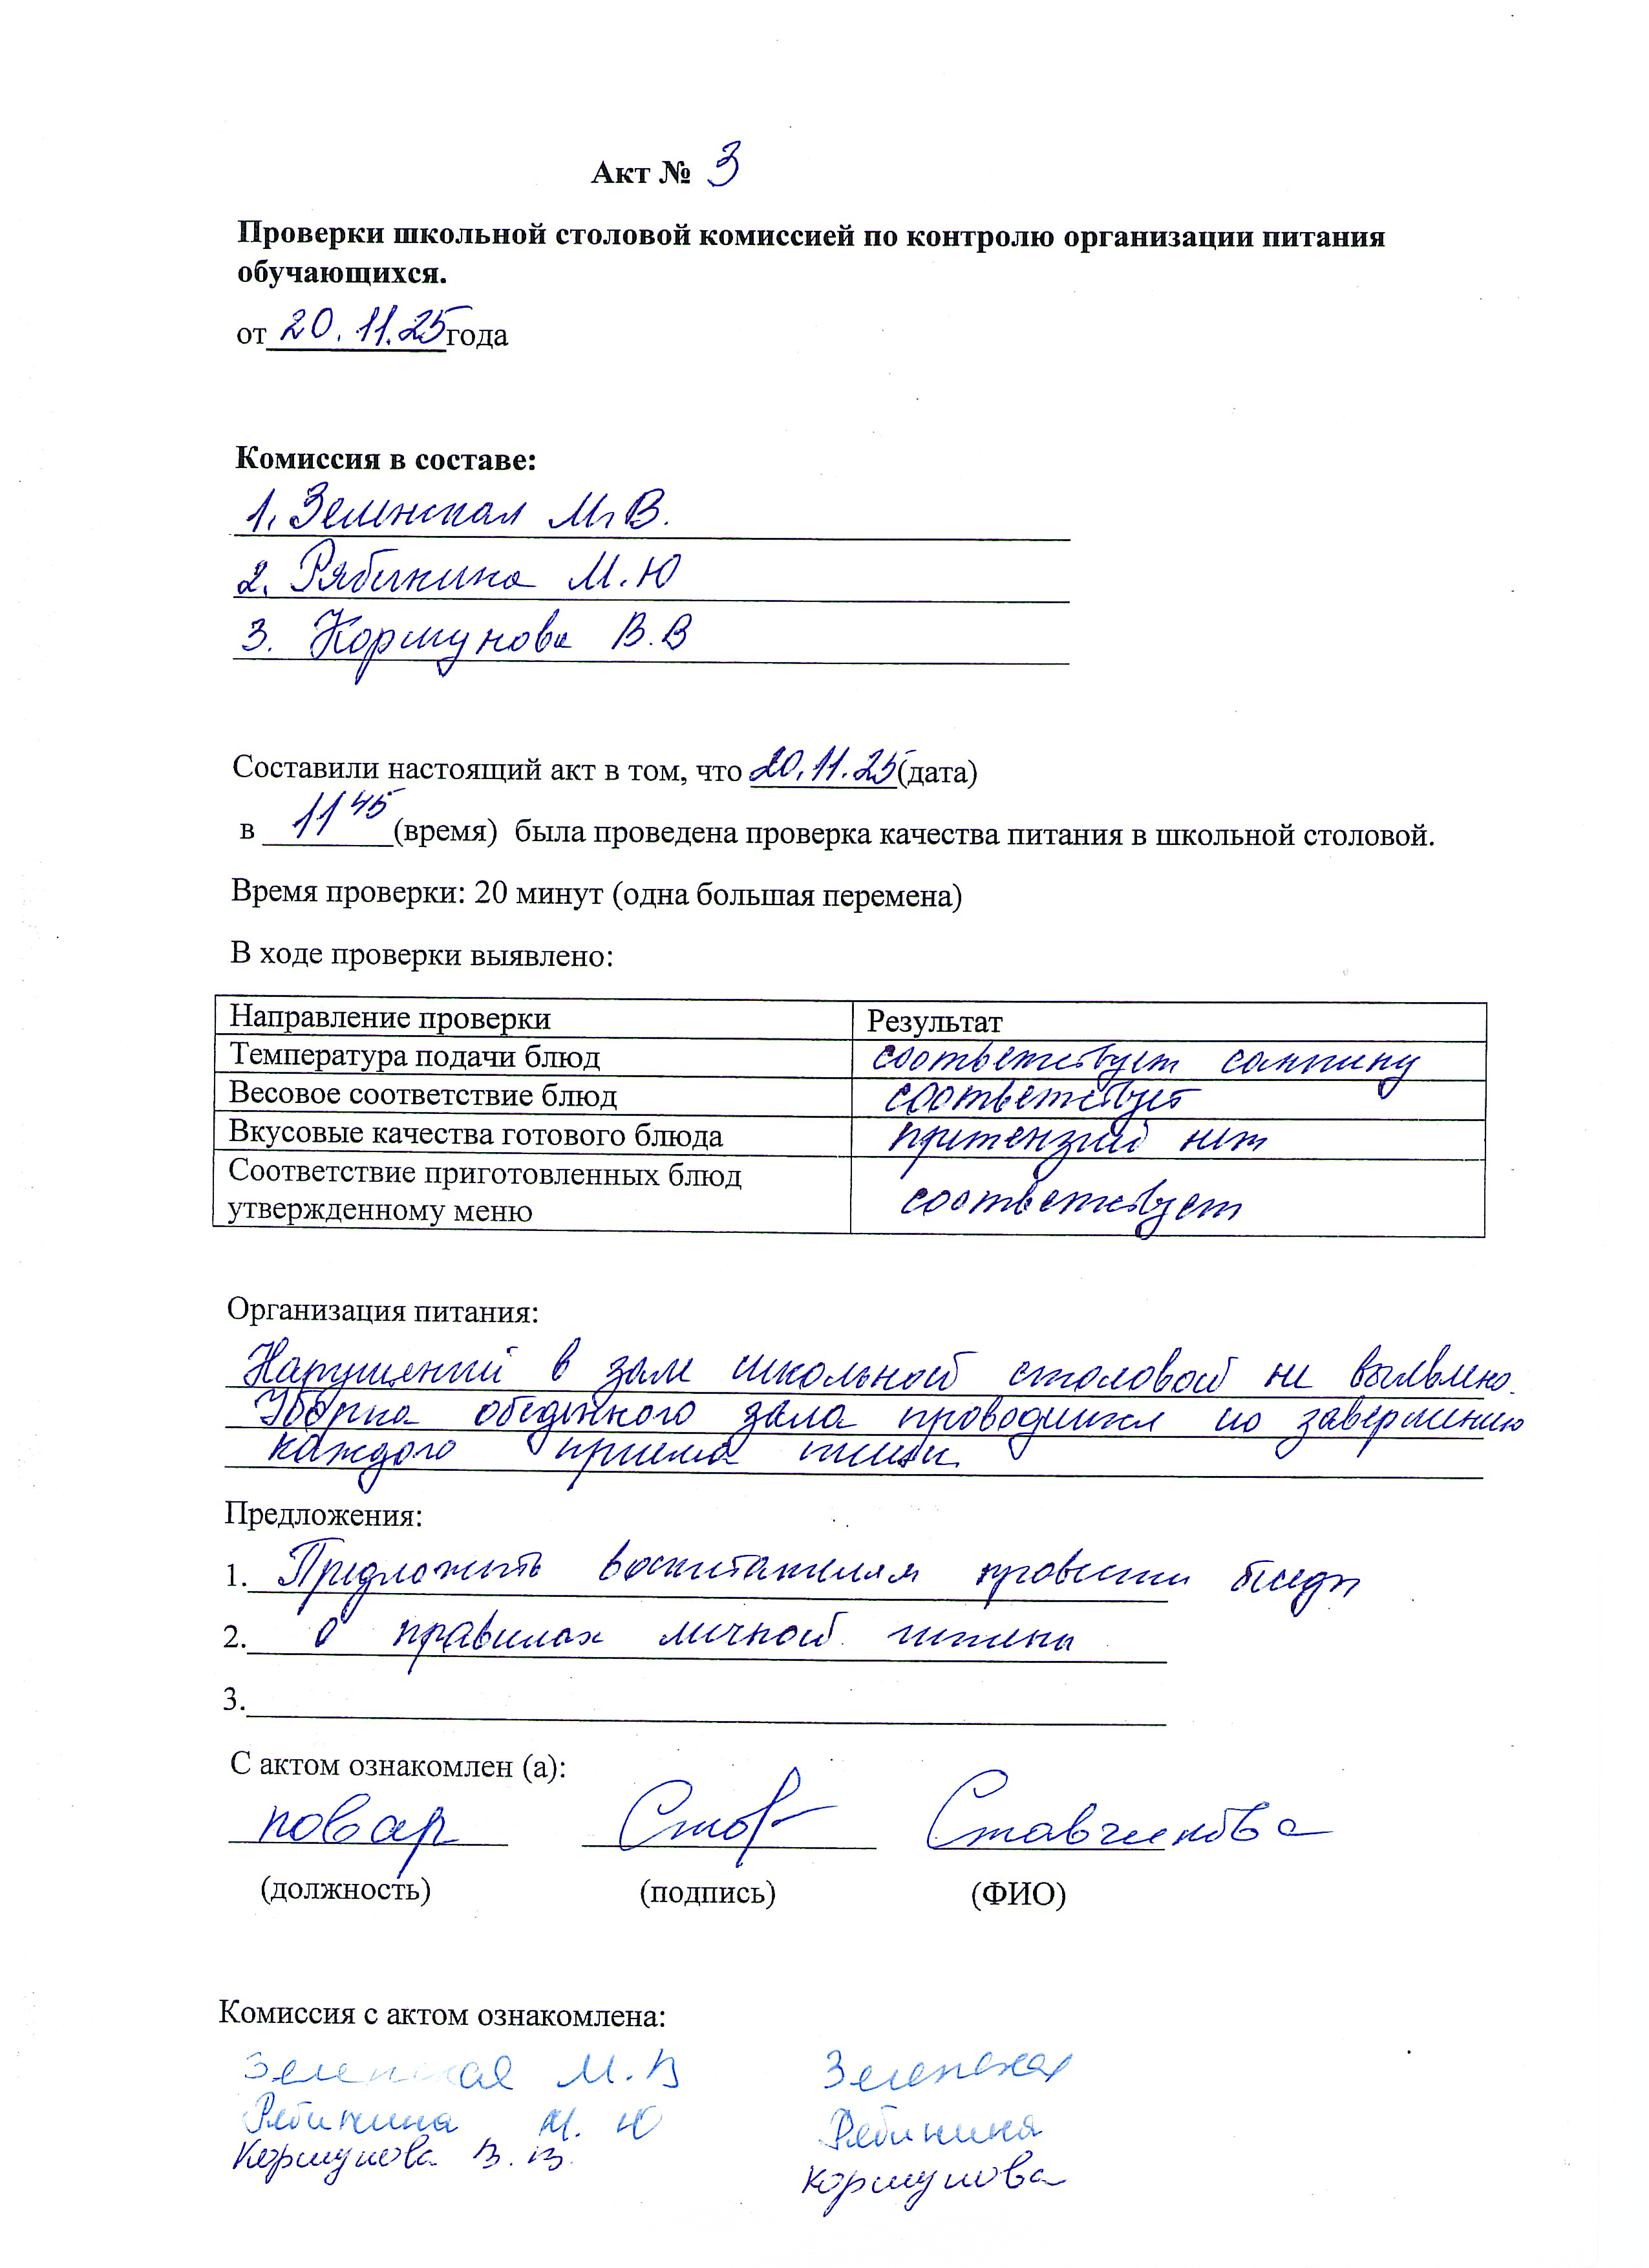 Акт № 3
Проверки школьной столовой комиссией по контролю организации питания
обучающихся.
от 20.11.25 года
Комиссия в составе:
1. Зеленская М.В.
2. Рябинина М.Ю
3. Коршунова В.В
Составили настоящий акт в том, что 20.11.25 (дата)
в 11 45 (время) была проведена проверка качества питания в школьной столовой.
Время проверки: 20 минут (одна большая перемена)
В ходе проверки выявлено:
Направление проверки Результат
Температура подачи блюд соответствует санпину
Весовое соответствие блюд соответствует
Вкусовые качества готового блюда притензий нет
Соответствие приготовленных блюд
утвержденному меню соответствует
Организация питания:
Нарушений в зале школьной столовой не выявлено.
Уборка обеденного зала проводится по завершению
каждого приема пищи.
Предложения:
1. Предложить воспитателям провести беседы
2. о правилах личной гигиены
3.
С актом ознакомлен (а):
повар Став Ставчикова
(должность) (подпись) (ФИО)
Комиссия с актом ознакомлена:
Зеленская М.В Зеленская
Рябинина М.Ю Рябинина
Коршунова В.В. Коршунова